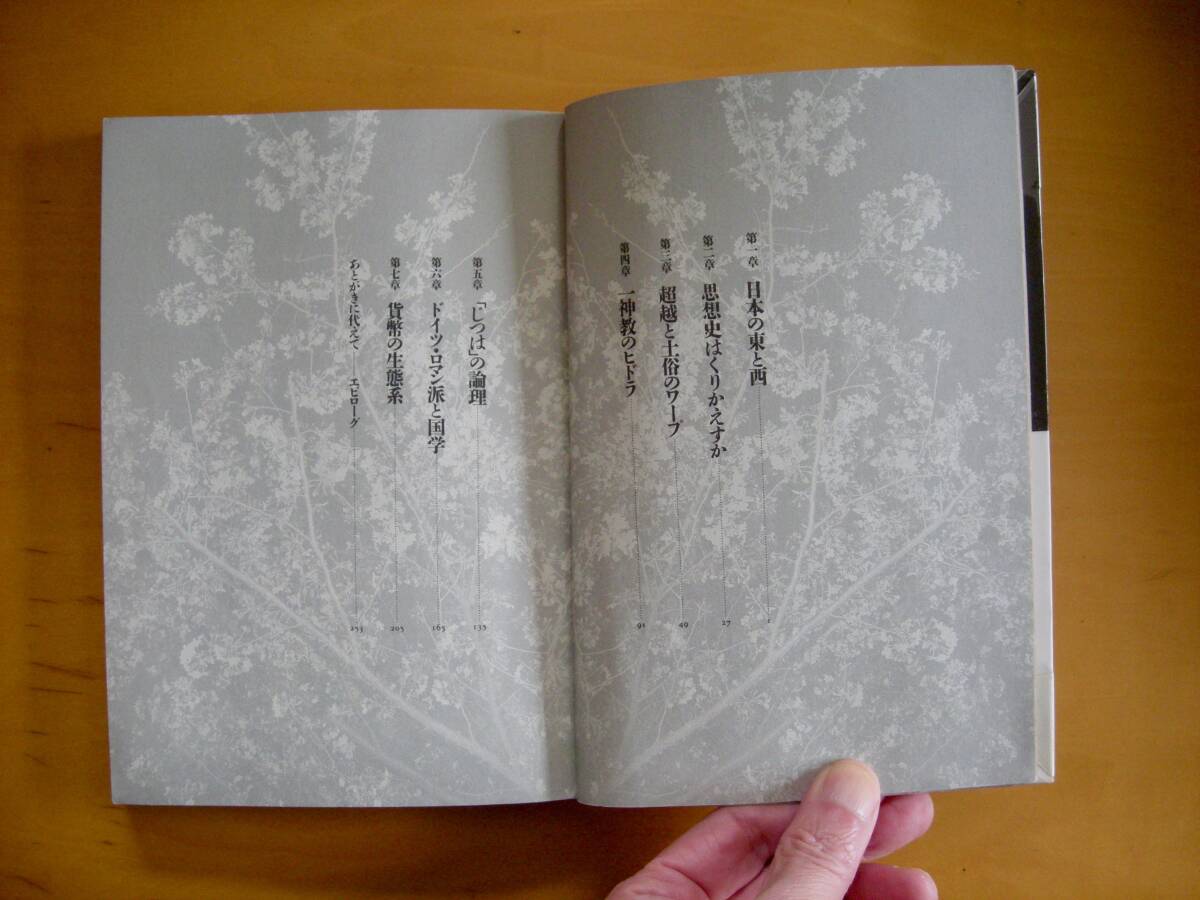 第一章 日本の東と西 1
第二章 思想史はくりかえすか 27
第三章 超越と土俗のワープ 49
第四章 一神教のヒドラ 91
第五章 「じつは」の論理 135
第六章 ドイツ・ロマン派と国学 165
第七章 貨幣の生態系 205
あとがきに代えて——エピローグ 253